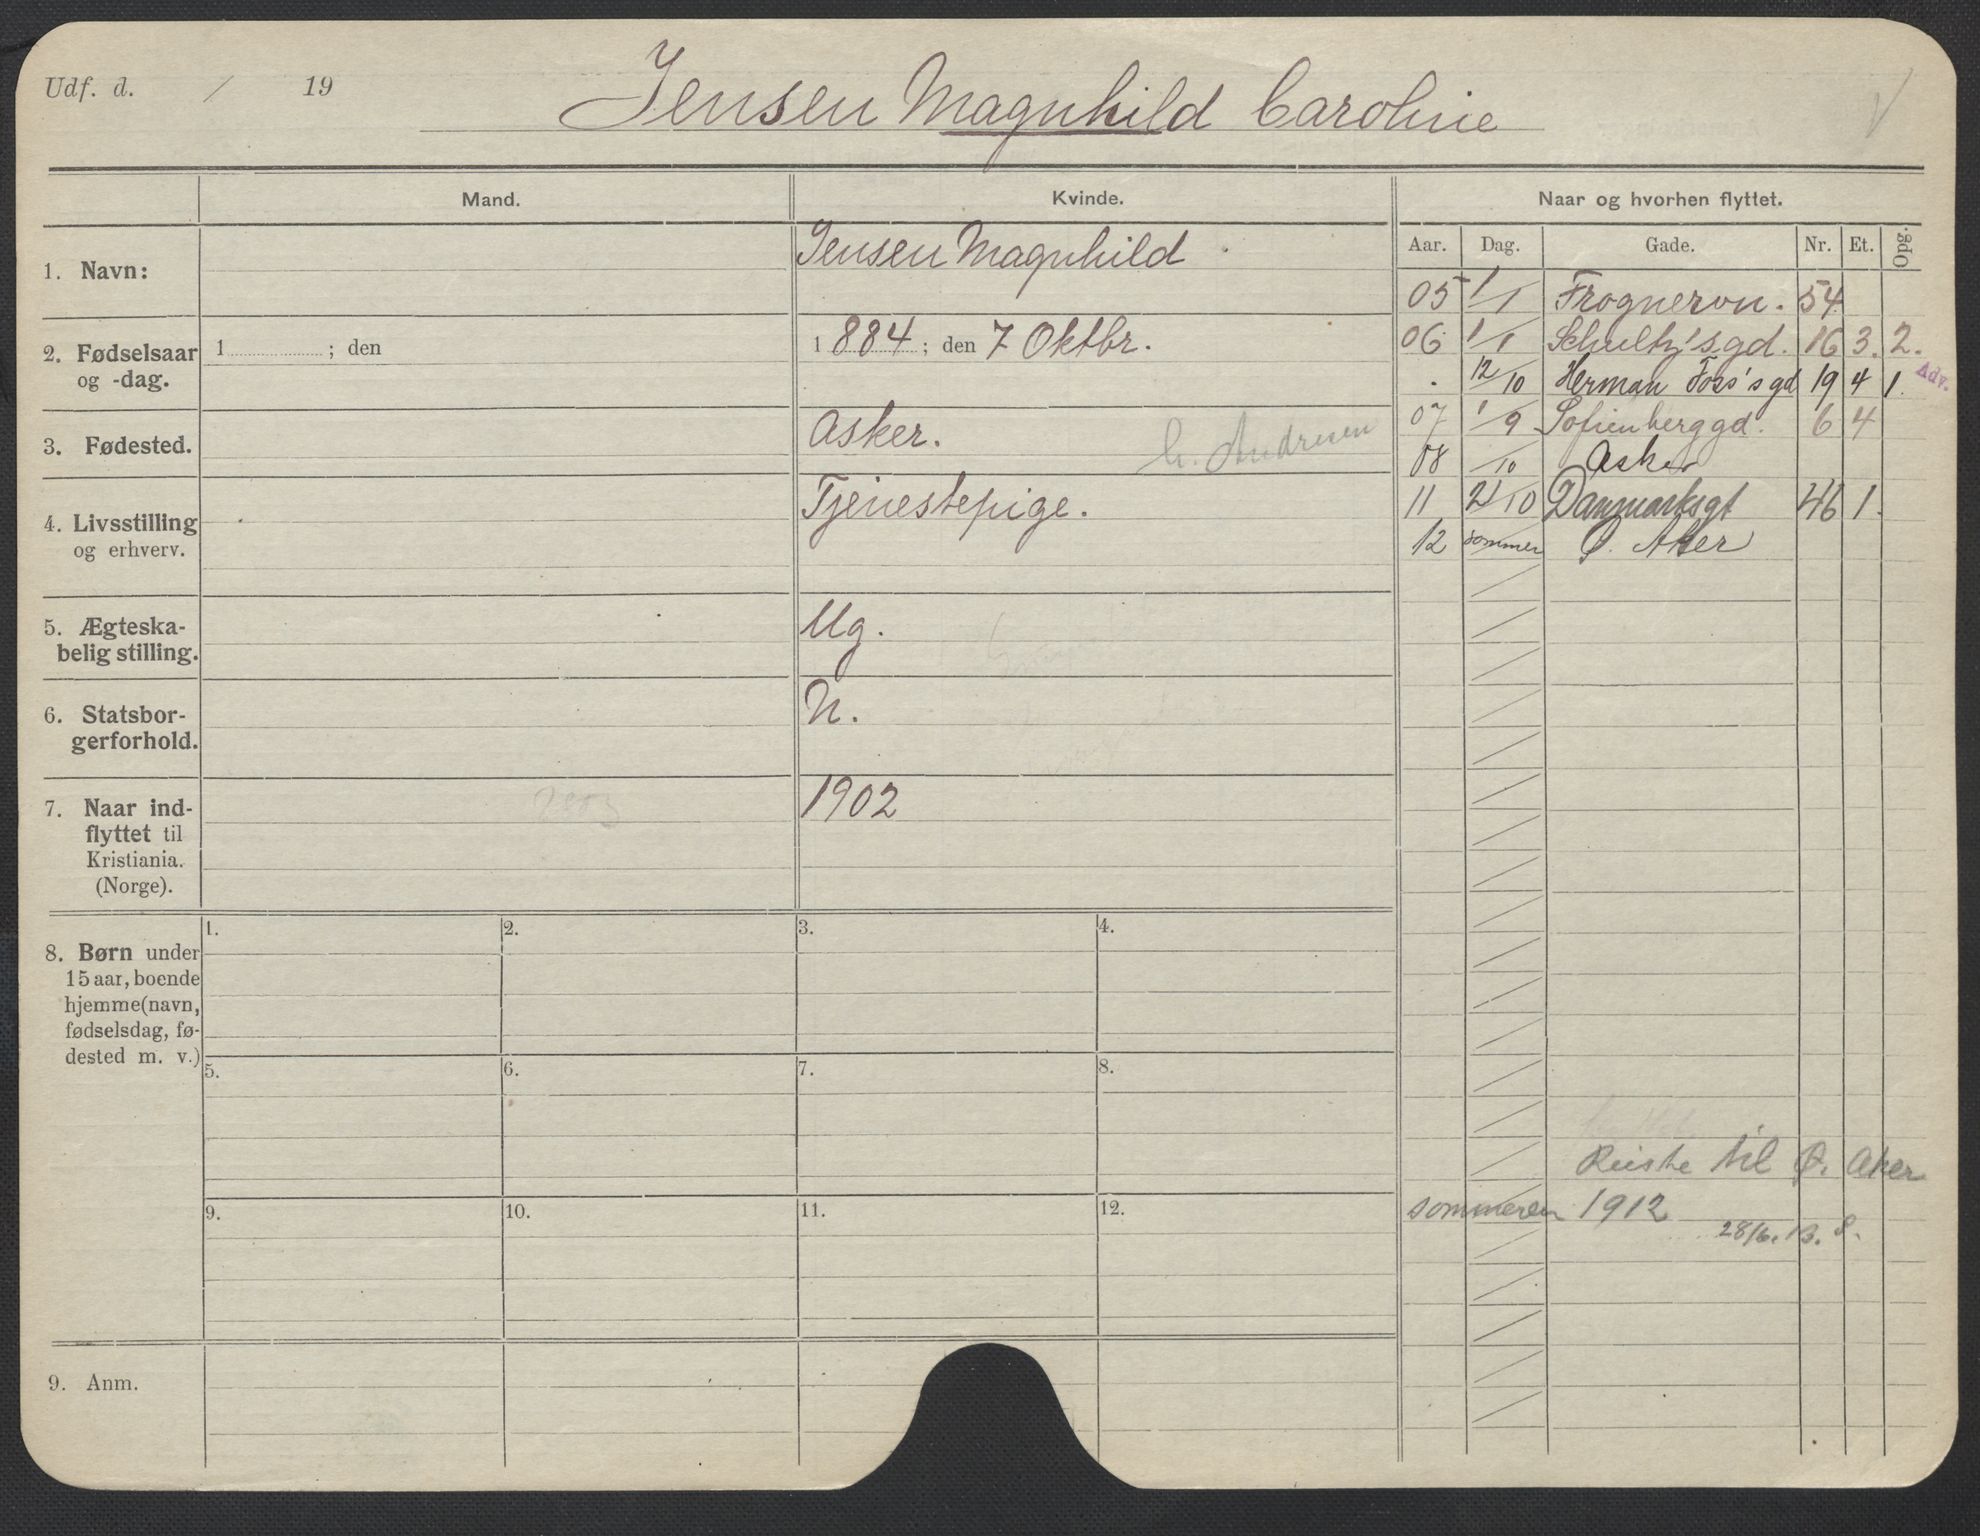 Udf. d. / 19
Jensen Magnhild Caroline
Mand.
Kvinde.
Naar og hvorhen flyttet.
Aar. Dag. Gade. Nr. Et. Opg.
1. Navn:
Jensen Magnhild
2. Fødselsaar
og -dag.
1 ; den
1884; den 7 Oktbr.
3. Fødested.
Asker.
Andresen
4. Livsstilling
og erhverv.
Tjenestepige.
5. Ægteska-
belig stilling.
Ug.
6. Statsbor-
gerforhold.
N.
7. Naar ind-
flyttet til
Kristiania.
(Norge).
1902
8. Børn under
15 aar, boende
hjemme (navn,
fødselsdag, fø-
dested m. v.)
1. 2. 3. 4.
5. 6. 7. 8.
9. 10. 11. 12.
9. Anm.
05 1/1 Frognervn. 54
06 1/1 Schultz'sgd. 16 3. 2.
. 12/10 Herman Foss's gd 19 4 1. Adv.
07 1/9 Sofienberggd. 6 4
08 /10 Asker
11 21/10 Danmarksgt 46 1.
12 sommer Ø. Aker
Reiste til Ø. Aker
sommeren 1912
28/6. 13. S.